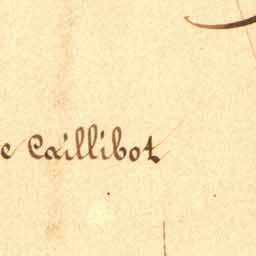 e Caillibot